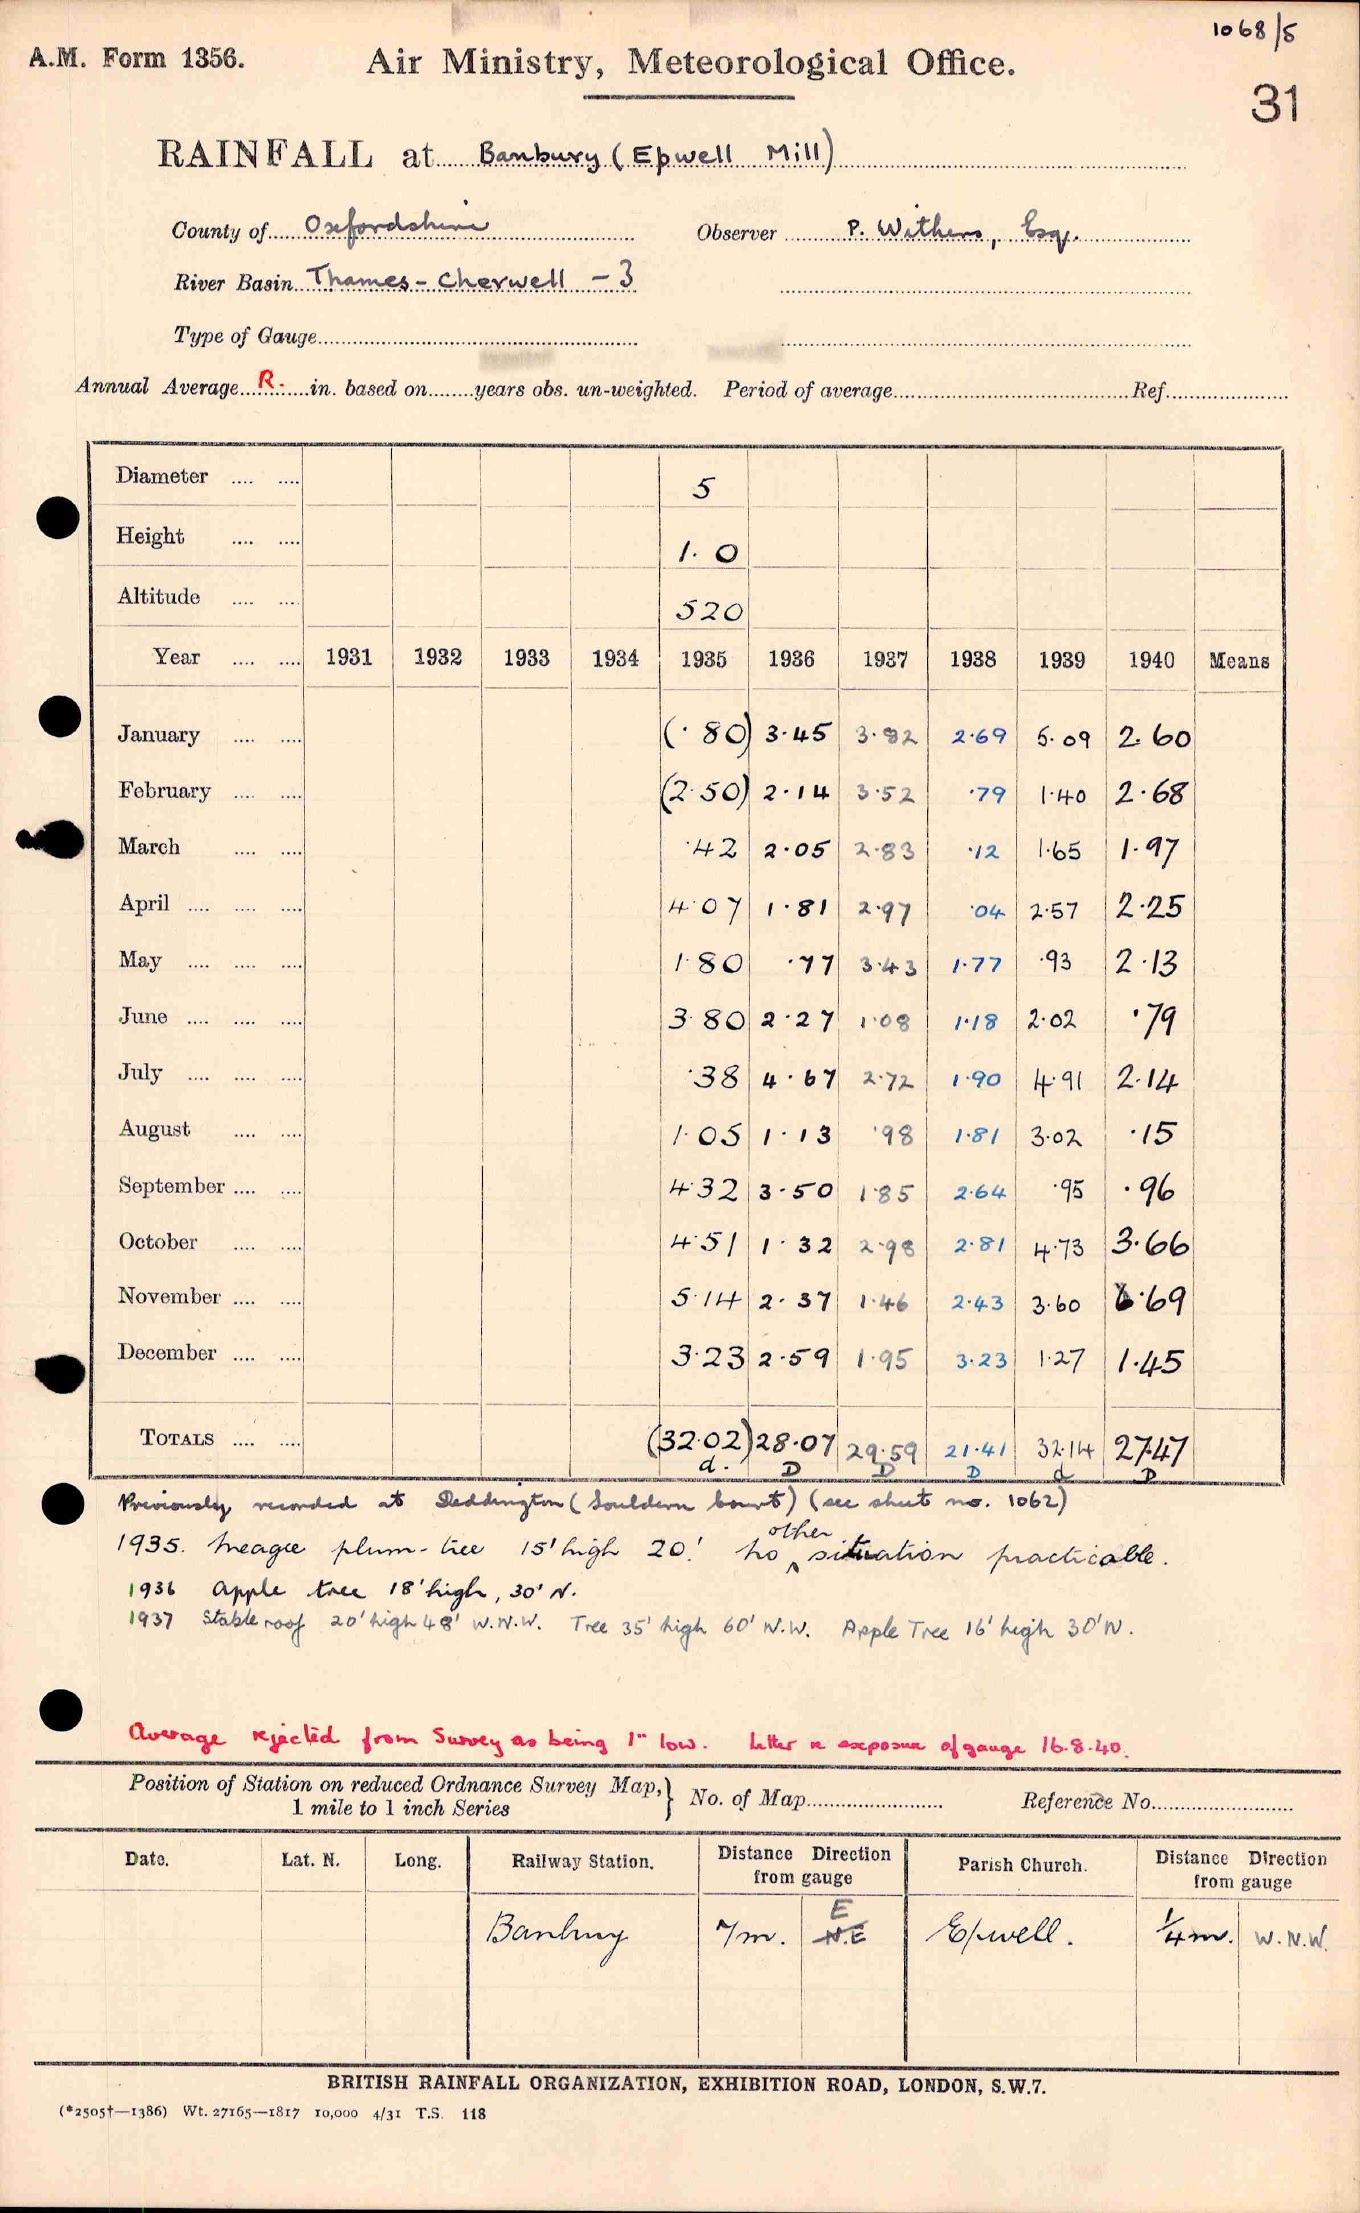 1068/5
A.M. Form 1356. Air Ministry, Meteorological Office.
31
RAINFALL at Banbury (Epwell Mill)
County of Oxfordshire Observer P. Withers, Esq.
River Basin Thames - Cherwell - 3
Type of Gauge
Annual Average R. in. based on years obs. un-weighted. Period of average Ref.
Diameter 5
Height 1. 0
Altitude 520
Year 1931 1932 1933 1934 1935 1936 1937 1938 1939 1940 Means
January (·80) 3·45 3·82 2·69 5·09 2·60
February (2·50) 2·14 3·52 ·79 1·40 2·68
March ·42 2·05 2·83 ·12 1·65 1·97
April 4·07 1·81 2·97 ·04 2·57 2·25
May 1·80 ·77 3·43 1·77 ·93 2·13
June 3·80 2·27 1·08 1·18 2·02 ·79
July ·38 4·67 2·72 1·90 4·91 2·14
August 1·05 1·13 ·98 1·81 3·02 ·15
September 4·32 3·50 1·85 2·64 ·95 ·96
October 4·51 1·32 2·98 2·81 4·73 3·66
November 5·14 2·37 1·46 2·43 3·60 6·69
December 3·23 2·59 1·95 3·23 1·27 1·45
TOTALS (32·02) 28·07 29·59 21·41 32·14 27·47
d. D D D d D
Previously recorded at Deddington (Souldern Court) (see sheet no. 1062)
1935. Meagre plum-tree 15' high 20'. No other situation practicable.
1936 Apple tree 18' high, 30' N.
1937 Stable roof 20' high 48' W.N.W. Tree 35' high 60' N.W. Apple Tree 16' high 30' N.
Average rejected from Survey as being 1" low. Letter re exposure of gauge 16.8.40.
Position of Station on reduced Ordnance Survey Map,} No. of Map Reference No.
1 mile to 1 inch Series
Date. Lat. N. Long. Railway Station. Distance Direction from gauge Parish Church. Distance Direction from gauge
E
Banbury 7m. N.E Epwell. 1/4 m. W.N.W.
BRITISH RAINFALL ORGANIZATION, EXHIBITION ROAD, LONDON, S.W.7.
(*2505†—1386) Wt. 27165—1817 10,000 4/31 T.S. 118